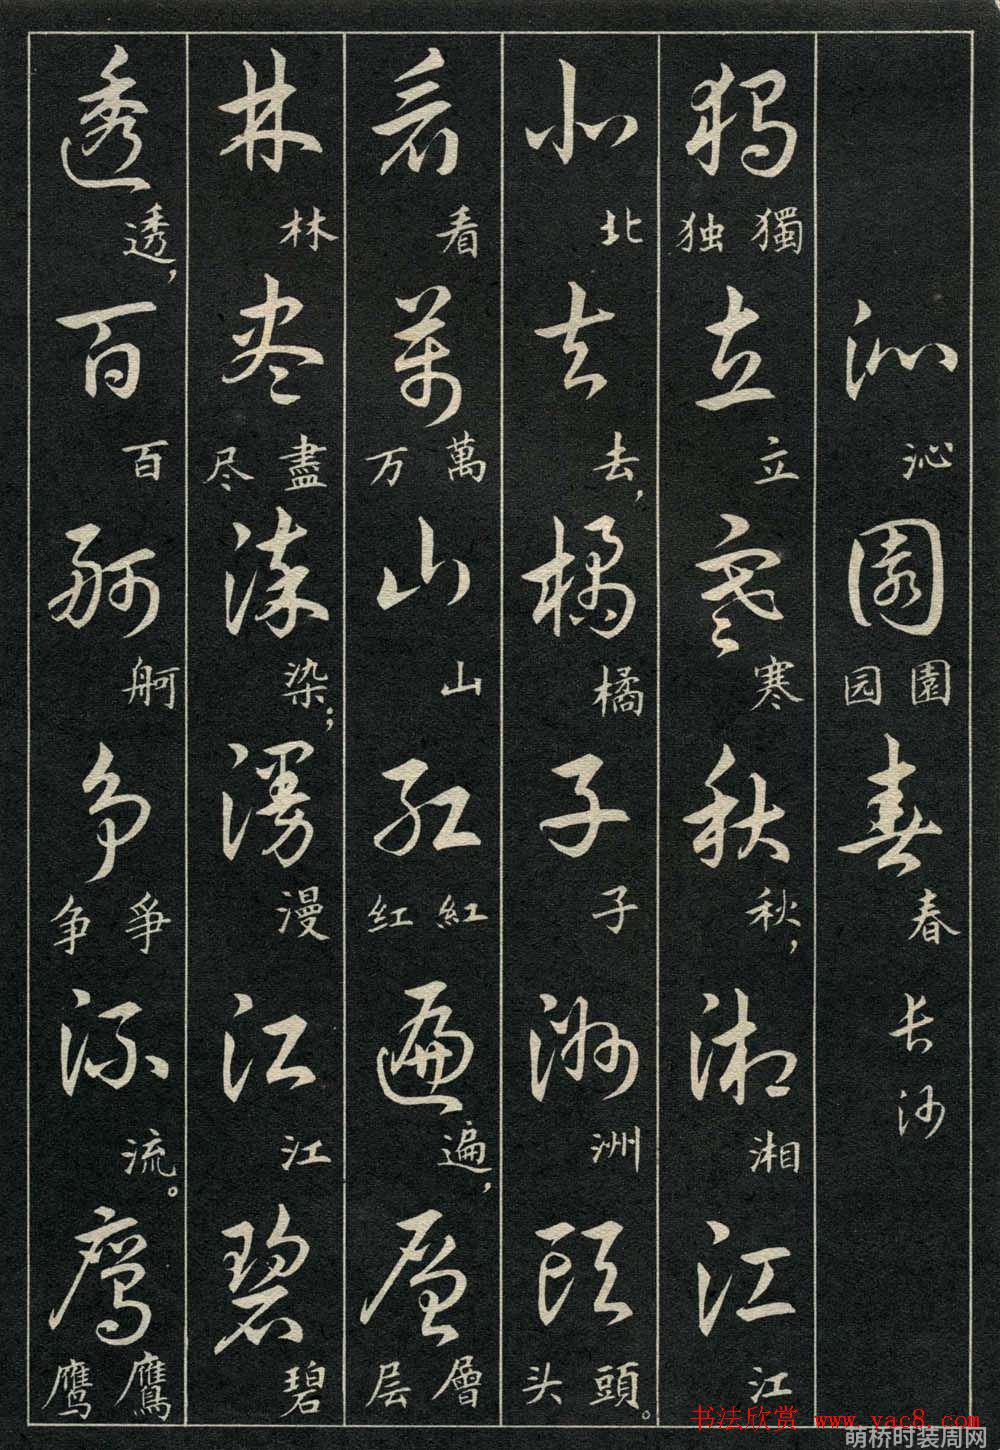 沁 沁 園 園 园 春 春 长沙
獨 獨 独 立 立 寒 寒 秋 秋， 湘 湘 江 江
北 北 去 去， 橘 橘 子 子 洲 洲 頭 頭。 头
看 看 萬 萬 万 山 山 紅 紅 红 遍 遍， 層 層 层
林 林 盡 盡 尽 染 染； 漫 漫 江 江 碧 碧
透 透， 百 百 舸 舸 爭 爭 争 流 流。 鷹 鷹 鹰
书法欣赏 www.yac8.com
萌桥时装周网